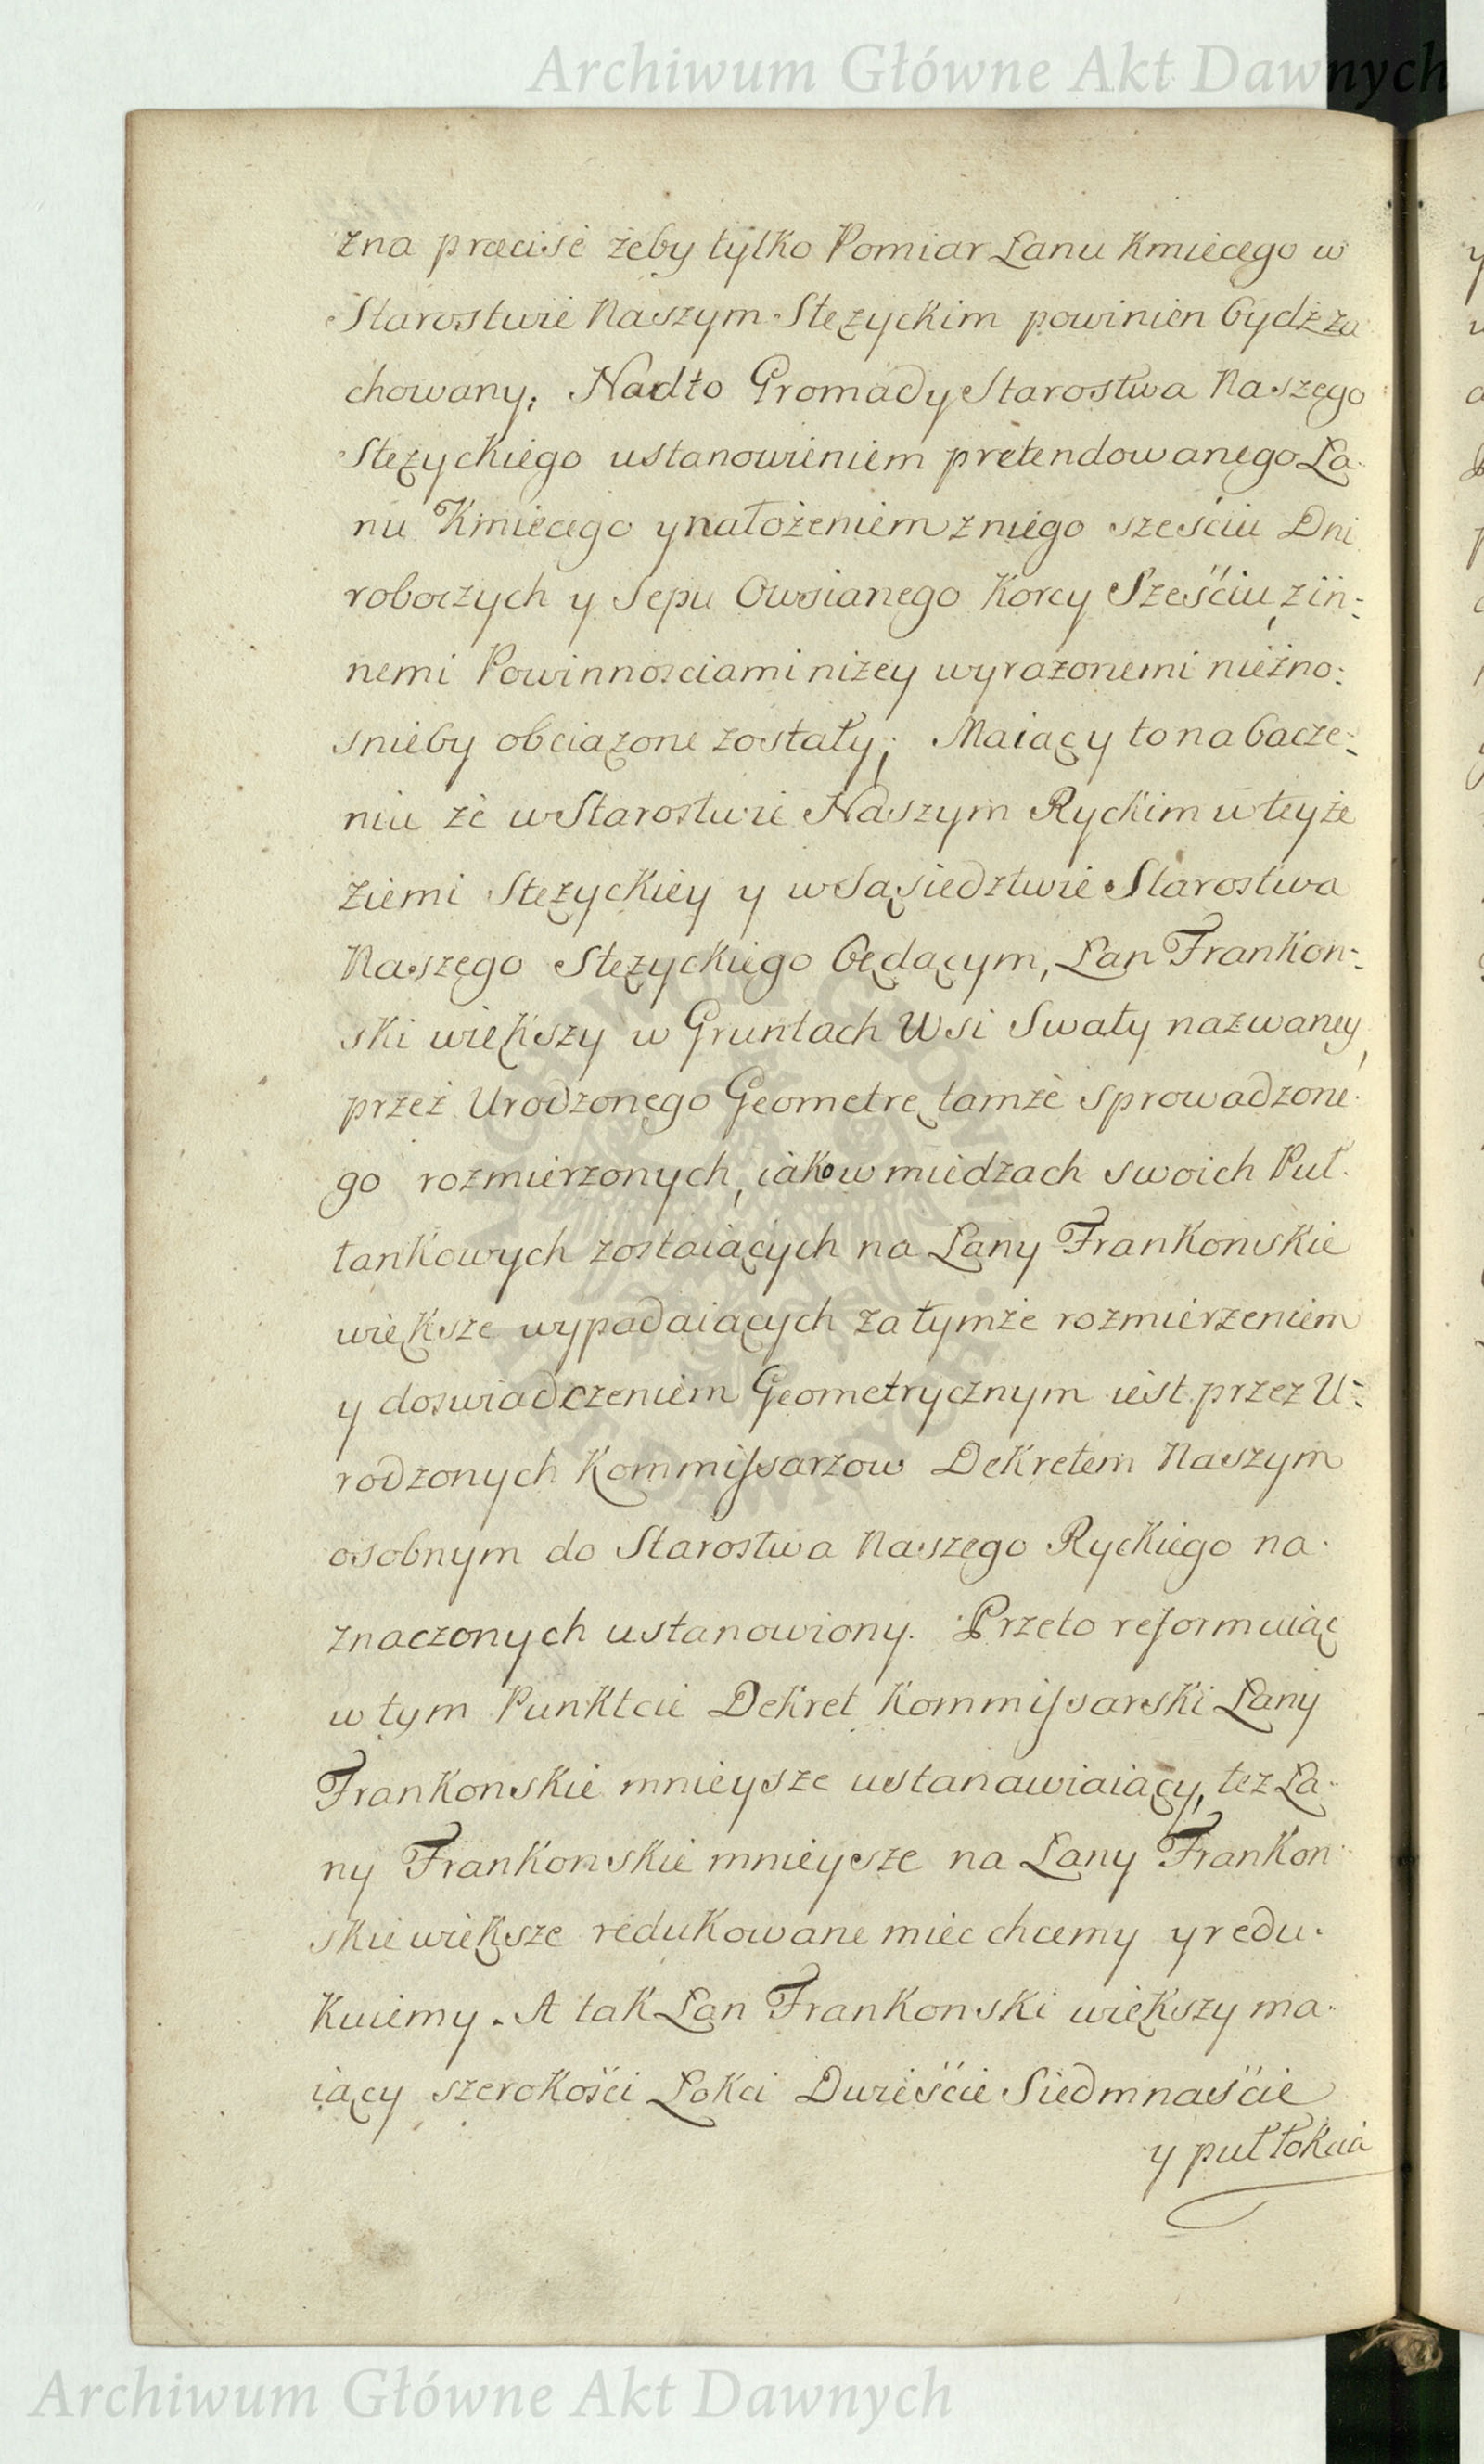 Archiwum Główne Akt Dawnych
zna præcise żeby tylko Pomiar Łanu Kmiecego w
Starostwie Naszym Stęzyckim powinien bydź za
chowany; Nadto Gromady Starostwa Naszego
Stęzyckiego ustanowieniem pretendowanego Ła-
nu Kmiecego y nałożeniem z niego sześciu Dni
roboczych y Sepu Owsianego Korcy Sześciu, z in-
nemi Powinnosciami niżey wyrażonemi nieżno-
snieby obciążone zostały; Maiący to na bacze-
niu że w Starostwie Naszym Ryckim w teyże
Ziemi Stęzyckiey y w Sąsiedztwie Starostwa
Naszego Stęzyckiego będącym, Łan Frankon-
ski większy w Gruntach Wsi Swaty nazwaney,
przez Urodzonego Geometrę tamże sprowadzone-
go rozmierzonych, iako w miedzach swoich Puł-
łankowych zostaiących na Łany Frankonskie
większe wypadaiących za tymże rozmierzeniem
y doswiadczeniem Geometrycznym iest przez U-
rodzonych Kommissarzow Dekretem Naszym
osobnym do Starostwa Naszego Ryckiego na-
znaczonych ustanowiony. Przeto reformuiąc
w tym Punktcie Dekret Kommissarski Łany
Frankonskie mnieysze ustanawiaiący, też Ła-
ny Frankonskie mnieysze na Łany Frankon-
skie większe redukowane miec chcemy y redu-
kuiemy. A tak Łan Frankonski większy ma-
iący szerokości Łokci Dwieście Siedmnaście
y puł łokcia
ARCHIWUM GŁÓWNE AKT DAWNYCH
Archiwum Główne Akt Dawnych